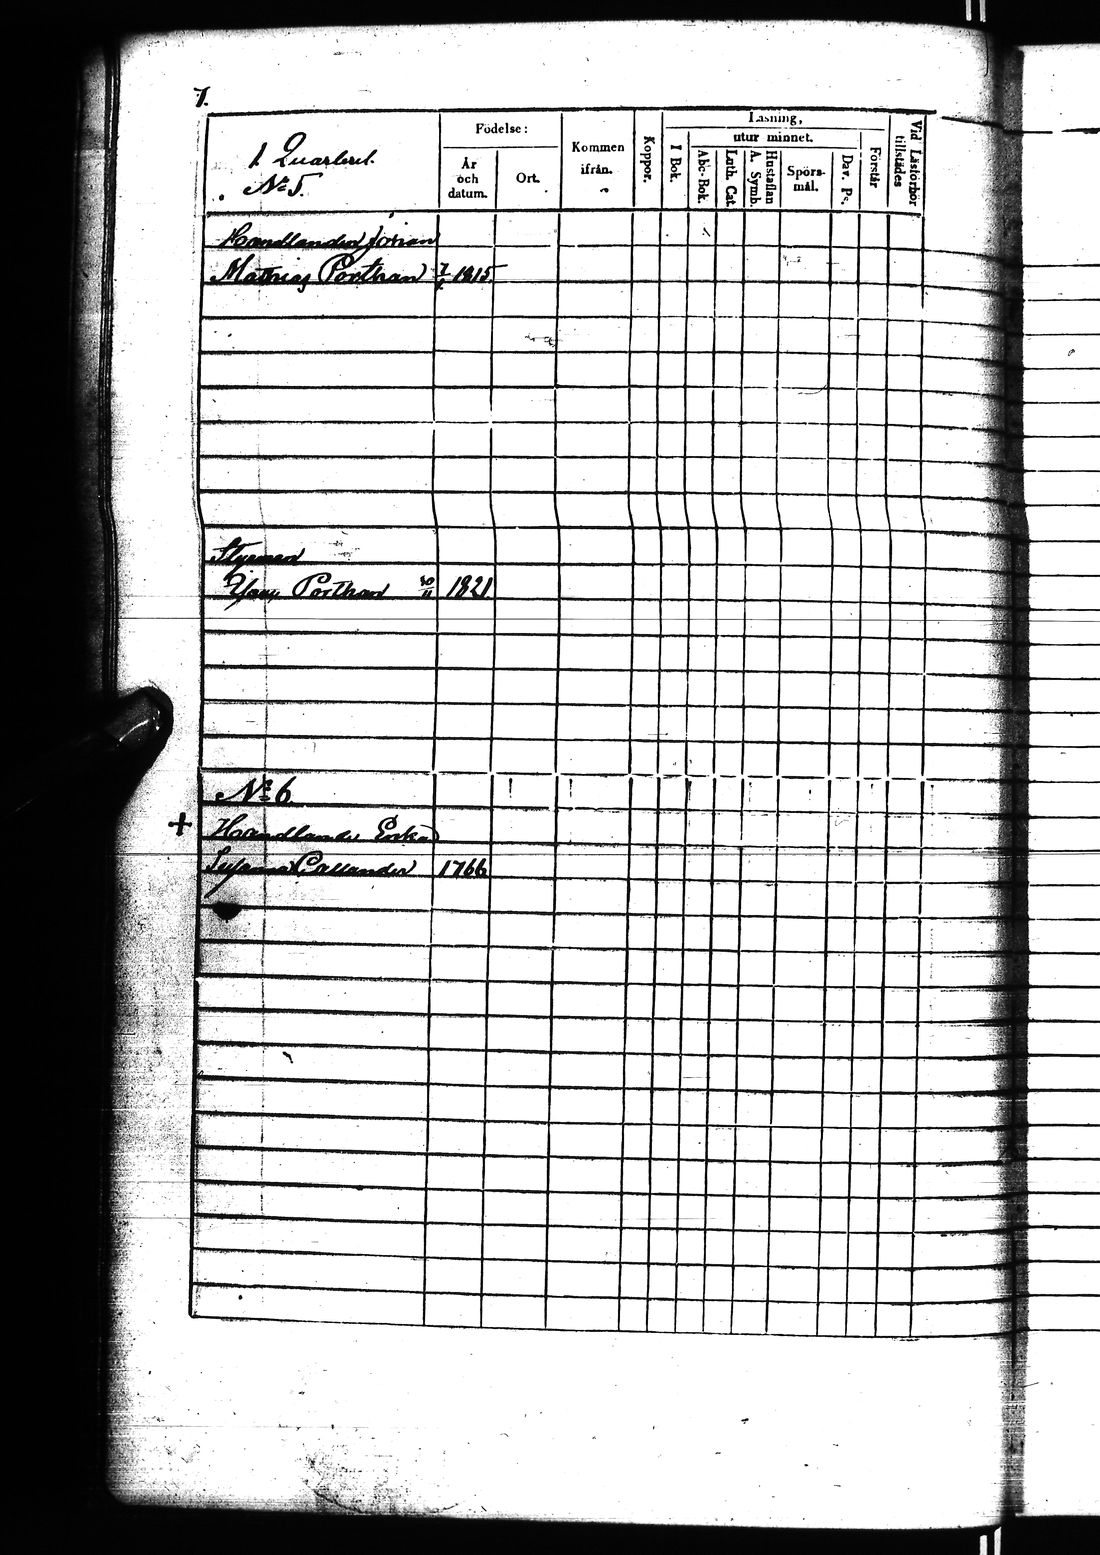 7.
1 Quarteret.
№ 5.
Födelse:
År och datum.
Ort.
Kommen ifrån.
Koppor.
Läsning,
utur minnet.
I Bok.
Abc-Bok.
Luth. Cat.
Hustaflan
A. Symb.
Spörs-
mål.
Dav. Ps.
Förstår
Vid Läsförhör
tillstädes
Handlanden Johan
Mathias Porthan 1815
Styrman
Porthan 30/11 1821
№ 6
+ Handlande Enkan
Susanna 1766